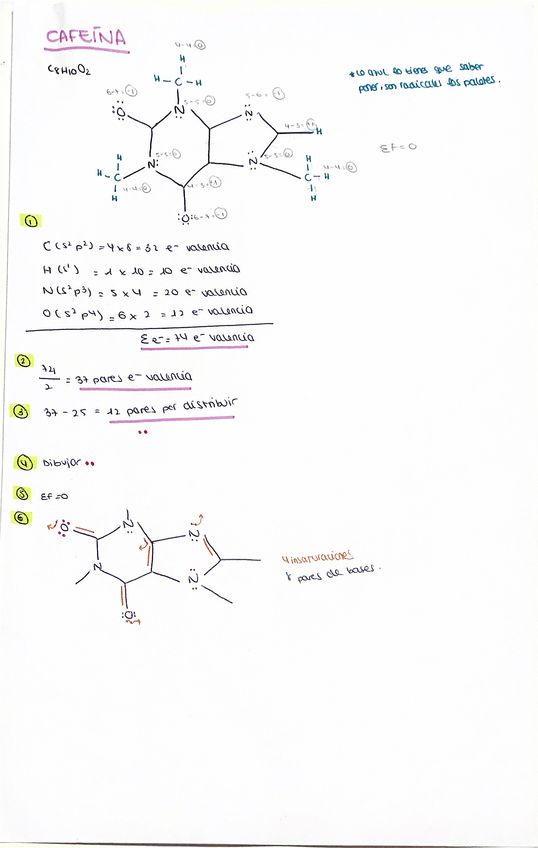 CAFEÍNA
C8H10O2
* Lo azul no tienes que saber
poner, son radicales los palotes.
4-4=0
H
H-C-H
6-7=-1
5-5=0
5-6=-1
O
N
N
4-3=+1
H
Σf=0
H
N
5-5=0
5-5=0
N
H
4-4=0
H-C
C-H
4-4=0
4-3=+1
H
H
O
6-7=-1
①
C (s² p²) = 4 x 8 = 32 e⁻ valencia
H (s¹) = 1 x 10 = 10 e⁻ valencia
N (s² p³) = 5 x 4 = 20 e⁻ valencia
O (s² p⁴) = 6 x 2 = 12 e⁻ valencia
Σe⁻ = 74 e⁻ valencia
②
74/2 = 37 pares e⁻ valencia
③ 37 - 25 = 12 pares por distribuir
④ Dibujar
⑤ Σf=0
⑥
O
N
N
N
N
O
4 insaturaciones
pares de bases.